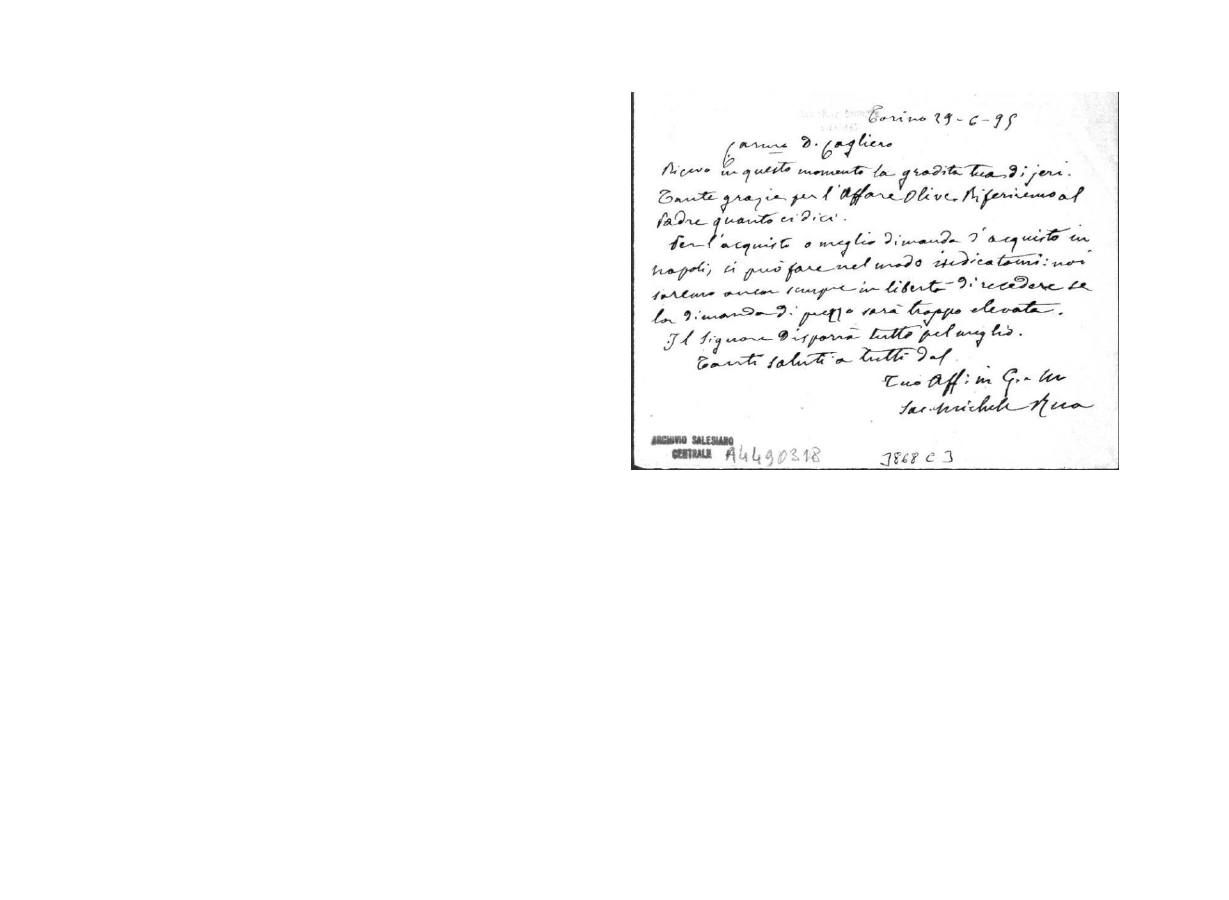 Torino 29-6-95
Carmo D. Cagliero
Ricevo in questo momento la gradita tua di jeri.
Tante grazie per l'Affare Olive. Riferiremo al
Padre quanto ci dici.
Per l'acquisto o meglio dimanda d'acquisto in
Napoli, si può fare nel modo indicatomi: noi
saremo ancor sempre in libertà di recedere se
la dimanda di prezzo sarà troppo elevata.
Il Signore disporrà tutto pel meglio.
Tanti saluti a tutti dal
Tuo Aff: in G. e M
Sac. Michele Rua
ARCHIVIO SALESIANO
CENTRALE A4490318 3868 C 3